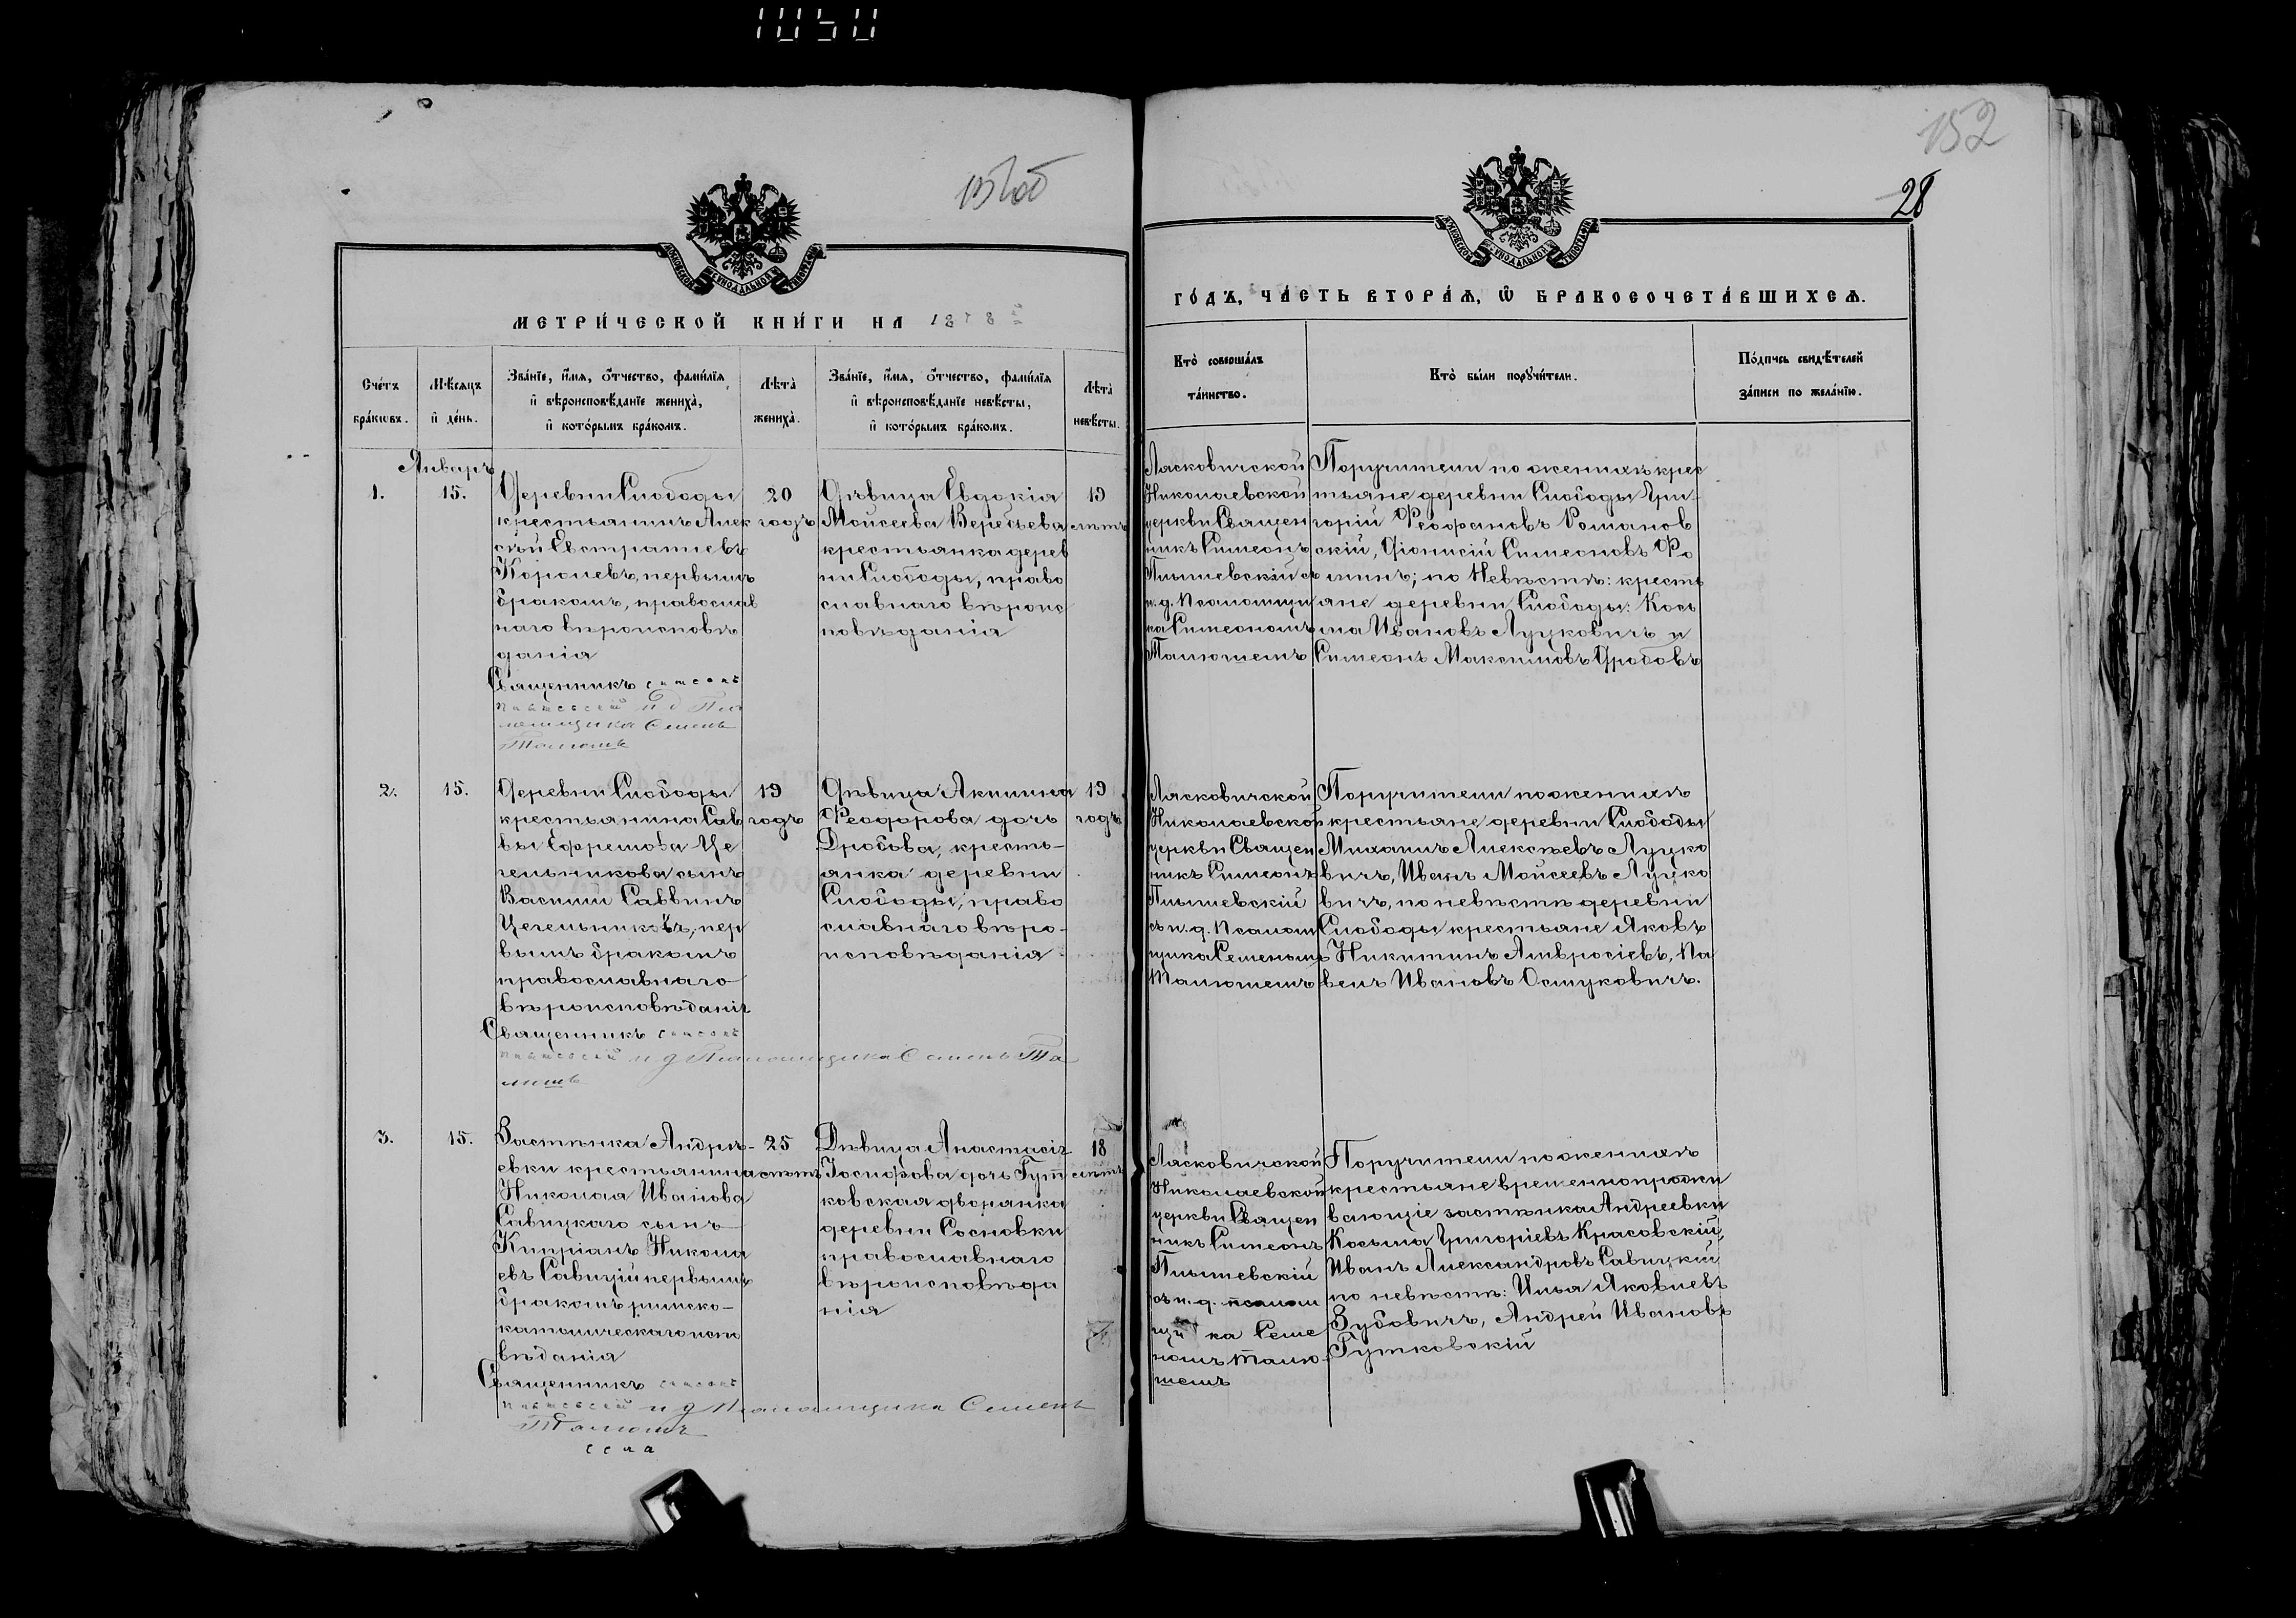 1050
151об
152
28
МОСКОВСКОЙ СѴНОДАЛЬНОЙ ТИПОГРАФІИ
МОСКОВСКОЙ СѴНОДАЛЬНОЙ ТИПОГРАФІИ
МЕТРИ́ЧЕСКОЙ КНИ́ГИ НА 1878
ГО́ДЪ, ЧА́СТЬ ВТОРА́Ѧ, Ѿ БРАКОСОЧЕТА́ВШИХСѦ.
Сче́тъ
бра́кѡвъ.
Мѣ́сяцъ
и҆ де́нь.
Зва́нїе, и҆́мѧ, ѻ҆́тчество, фами́лїѧ
и҆ вѣроисповѣ́данїе жениха̀,
и҆ кото́рымъ бра́комъ.
Лѣ́та
жениха̀.
Зва́нїе, и҆́мѧ, ѻ҆́тчество, фами́лїѧ
и҆ вѣроисповѣ́данїе невѣ́сты,
и҆ кото́рымъ бра́комъ.
Лѣ́та
невѣ́сты.
Кто̀ соверша́лъ
та́инство.
Кто̀ бы́ли порꙋчи́тели.
По́дпись свидѣ́телей
за́писи по жела́нїю.
Январь
1.
15.
Деревни Слободы
крестьянинъ Алек
сѣй Евстратіевъ
Королевъ, первымъ
бракомъ, православ
наго вѣроисповѣ
данія
Священникъ Симеонъ
Пл и д Пса
ломщика Семенъ
Талюшъ
20
годъ
Дѣвица Евдокія
Моисеева Веребьева
крестьянка дерев
ни Слободы, право
славнаго вѣроис
повѣданія
19
лѣтъ
Лясковичской
Николаевской
церкви Священ
никъ Симеонъ
Плышевскій съ
и. д. Псаломщи
ка Симеономъ
Талюшемъ
Поручители по женихѣ крес
тьяне деревни Слободы Гри
горій Феофановъ Романов
скій, Діонисій Симеоновъ Фо
минъ; по Невѣстѣ: кресть
яне деревни Слободы: Кось
ма Ивановъ Луцковичъ и
Симеонъ Максимовъ Дробовъ
2.
15.
Деревни Слободы
крестьянина Сав
вы Ефремова Це
гельникова сынъ
Василій Саввинъ
Цегельниковъ, пер
вымъ бракомъ
православнаго
вѣроисповѣданія
Священникъ Симеонъ
и д Псаломщика Семенъ Та
люшъ
19
годъ
Дѣвица Акилина
Феодорова дочь
Дробова, кресть-
янка деревни
Слободы, право
славнаго вѣро-
исповѣданія
19
годъ
Лясковичской
Николаевской
церкви Священ
никъ Симеонъ
Плышевскій
съ и. д. Псалом
щика Семеномъ
Талюшемъ
Поручители по женихѣ
крестьяне деревни Слободы
Михаилъ Алексѣевъ Луцко
вичъ, Иванъ Моисеевъ Луцко
вичъ, по невѣстѣ деревни
Слободы крестьяне Яковъ
Никитинъ Амвросіевъ, Па
велъ Ивановъ Остуковичъ.
3.
15.
Застѣнка Андре-
евки крестьянина
Николая Иванова
Савицкаго сынъ
Кипріанъ Никола
евъ Савицкій первымъ
бракомъ римско-
католическаго испо
вѣданія
Священникъ Симеонъ
и д Псаломщика Семенъ
Талюшъ
25
лѣтъ
Дѣвица Анастасія
Іосифова дочь Гут
ковская дворянка
деревни Сосновки
православнаго
вѣроисповѣда
нія
18
лѣтъ
Лясковичской
Николаевской
церкви Священ
никъ Симеонъ
Плышевскій
съ и. д. псалом
щика Семе
номъ Талю-
шемъ
Поручители по женихѣ
крестьяне временнопрожи
вающіе застѣнка Андреевки
Косьма Григоріевъ Красовскій,
Иванъ Александровъ Савицкій
по невѣстѣ: Илья Яковлевъ
Зубовичъ, Андрей Ивановъ
Гутковскій